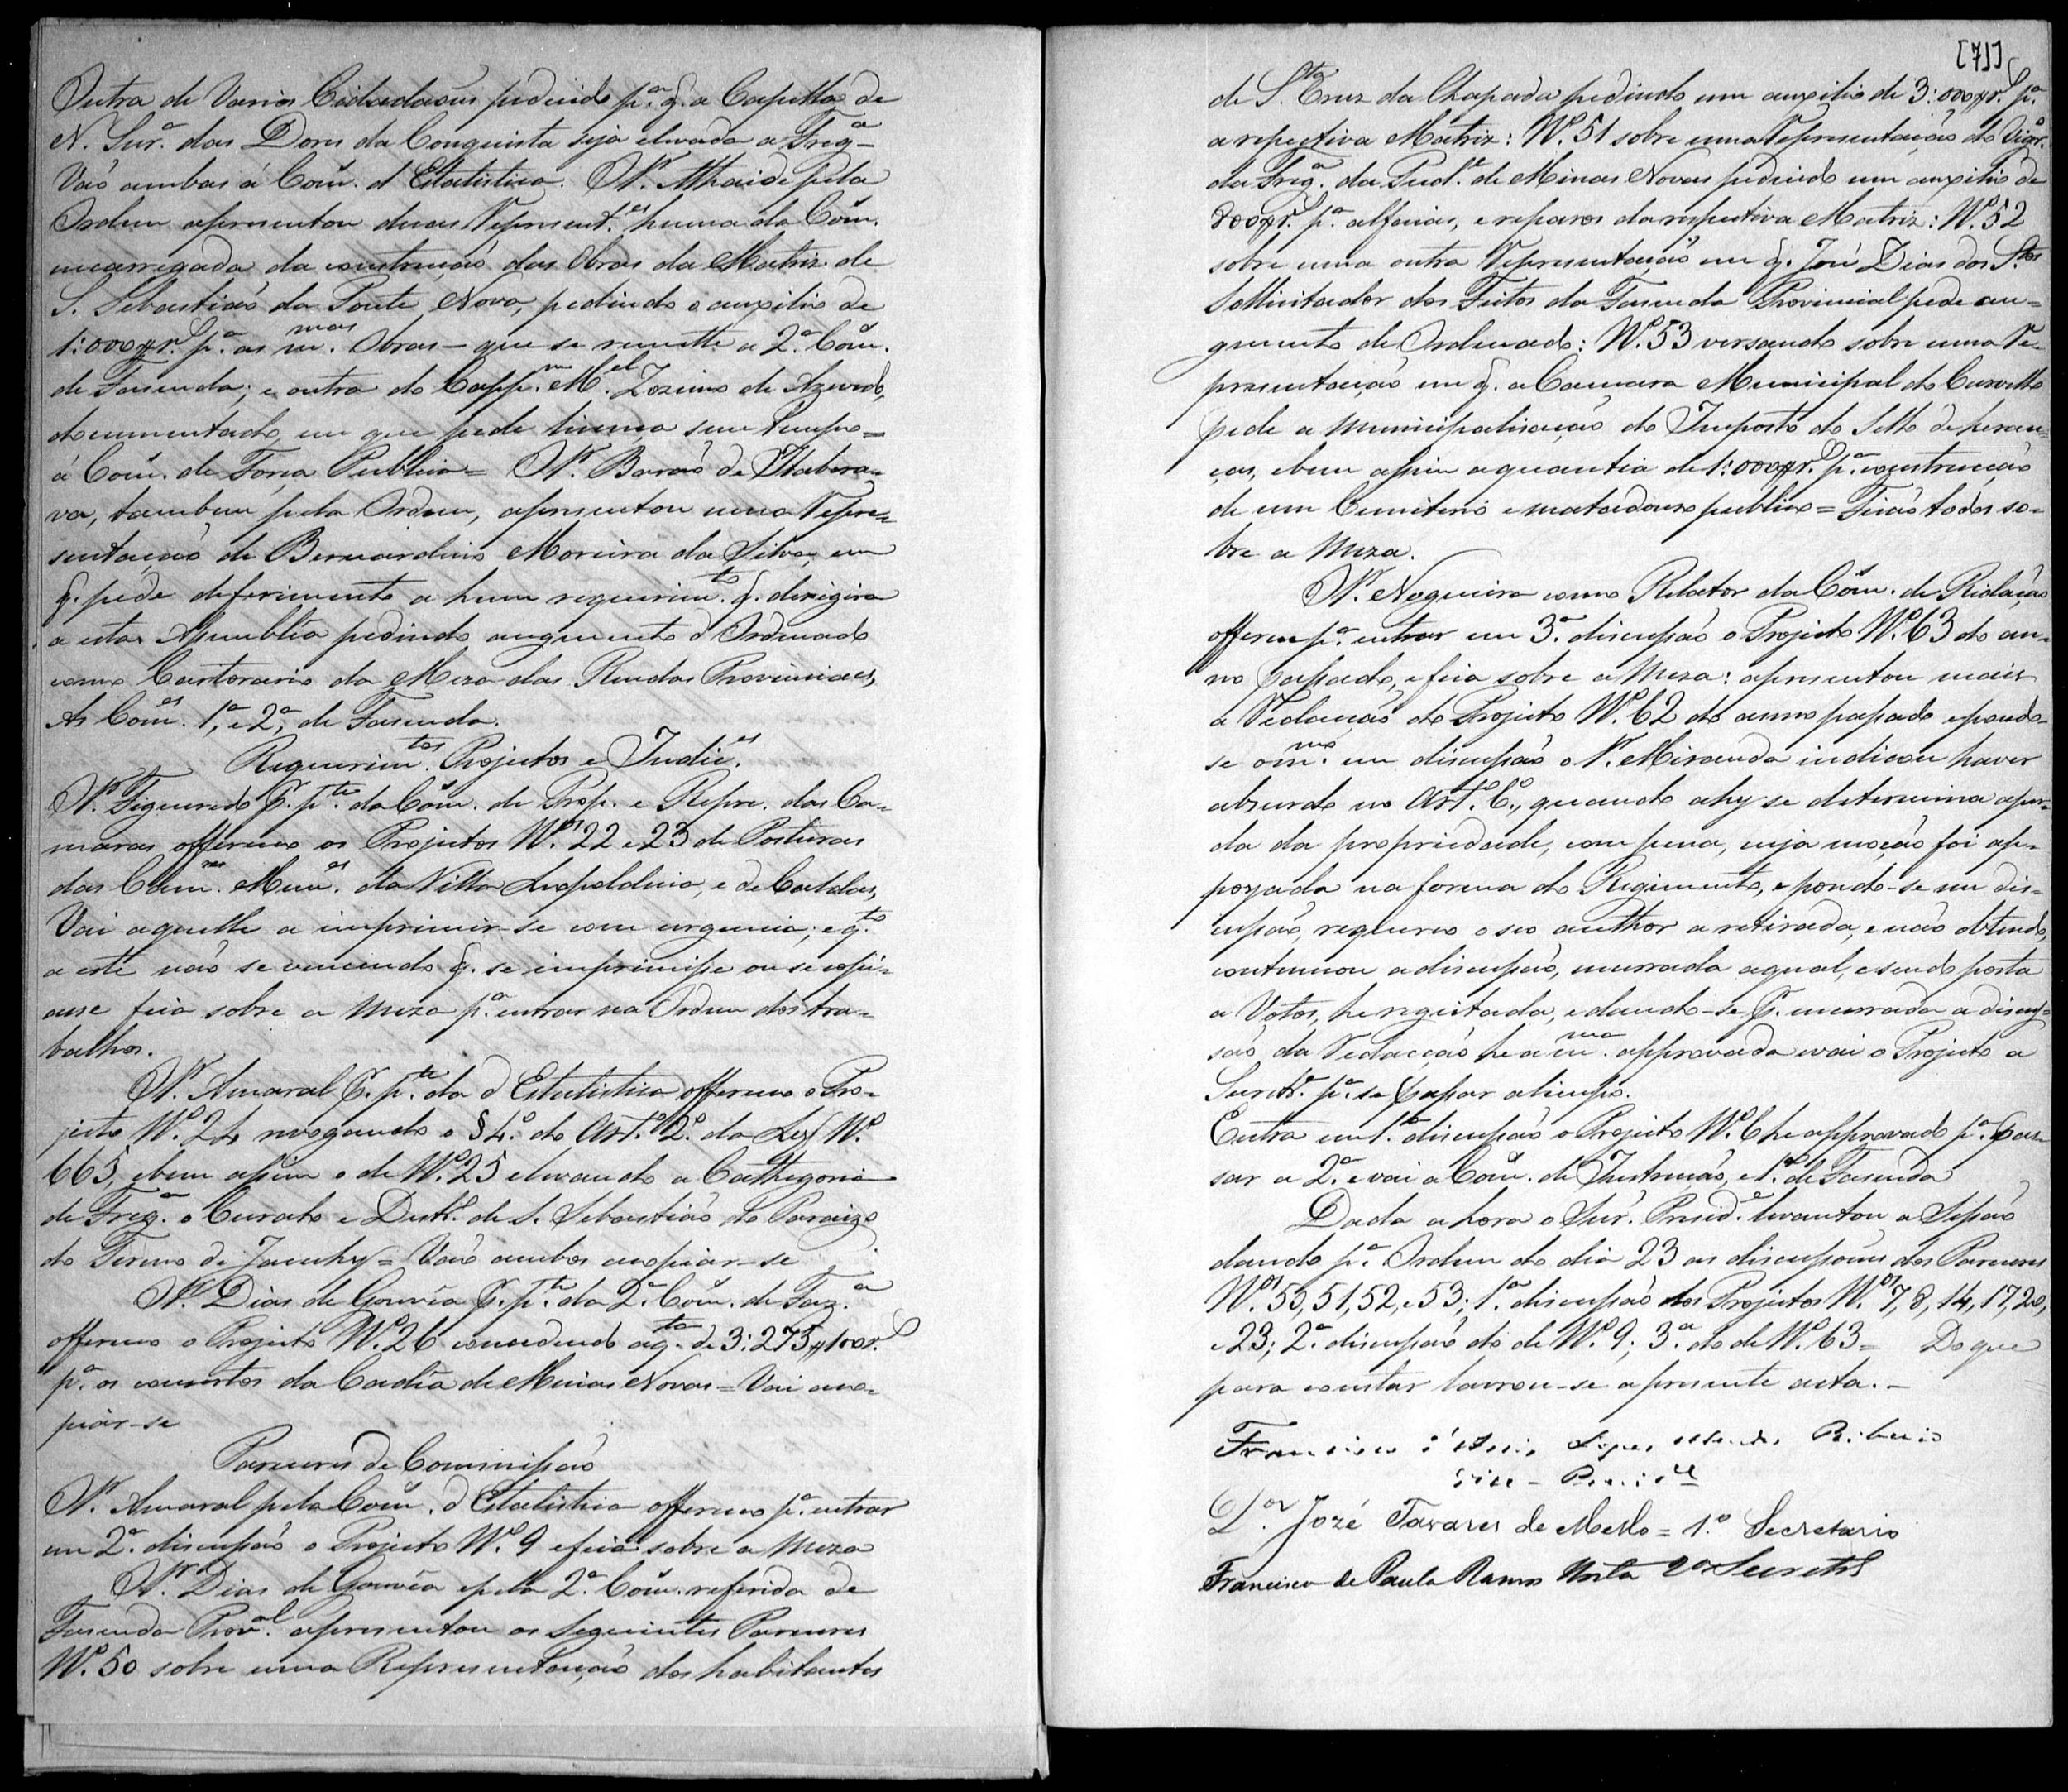 Outra de Varios Cidadaõus pedindo pª. q. a Capella de
N. Surª. das Dores da Conquista seja elevada a Fregª
Vaõ ambas á Com̃. d'Estatistica. Sr. Athaide pela
Ordem apresentou duas Represent.es huma da Com̃.
encarregada da construcçaõ das Obras da Matriz de
S. Sebastiaõ da Ponte Nova, pedindo o auxilio de
1:000$r. pª. as m.mas Obras – que se remette a 2ª. Com̃.
de Fasenda; e outra do Capp.m M.el Zozimo de Azevedo,
documentado, em que pede licença sem tempo =
á Com̃. de Força Publica = Sr. Baraõ de Itabera=
va, tambem pela Ordem, apresentou uma Repre=
sentaçaõ de Bernardino Moreira da Silva, em
q. pede deferimento a hum requerim.to q. dirigira
a esta Assemblea pedindo augmento d'Ordenado
como Cartorario da Meza das Rendas Provinciaes,
As Com̃.es 1ª, e 2ª, de Fasenda.
Requerim.tos Projectos e Indic.es
Sr. Figueiredo p. pte. da Com̃. de Prop. e Repre. das Ca=
maras offereceo os Projectos N.os 22 e 23 de Posturas
das Cam.ras Mun.es da Villa Leopoldina, e de Caldas,
Vai aquelle a imprimir-se com urgencia; e q.to
a este naõ se vencendo q. se imprimisse ou se copi=
asse fica sobre a meza pª. entrar na Ordem dos tra=
balhos.
Sr. Amaral p. pte. da d'Estatistica offereceo o Pro=
jecto Nº. 24 revogando o § 4º. do Art.º 2º. da Ley Nº.
665, e bem assim o de Nº. 25 elevando a Cathegoria
de Fregª. o Curato e Distr.º de S. Sebastiaõ do Paraizo
do Termo de Jacuhy = Vaõ ambos a copiar-se
Sr. Dias de Gouvêa p. pte. da 2ª. Com̃. de Faz.ª
offereceo o Projecto Nº. 26 concedendo a q.ta de 3:275$100r.
pª. os concertos da Cadêa de Minas Novas = Vai a co=
piar-se
Pareceres de Commissaõ
Sr. Amaral pela Com̃. d'Estatistica offereceo pª. entrar
em 2ª. discussaõ o Projecto Nº. 9 e fica sobre a meza
Sr. Dias de Gouvêa e pela 2ª. Com̃. referida de
Fasenda Prov.al apresentou os seguintes Pareceres
Nº. 50 sobre uma Representaçaõ dos habitantes
[71]
de S.ta Cruz da Chapada pedindo um auxilio de 3:000$r. pª.
a repectiva Matriz: Nº. 51 sobre uma Representaçaõ do Vigr.º
da Fregª. da Pied.e de Minas Novas pedindo um auxilio de
800$r. pª. alfaias, e reparos da respectiva Matriz: Nº. 52
sobre uma outra Representaçaõ em q. José Dias dos S.tos
Sollicitador dos Feitos da Fasenda Provincial pede au=
gmento de Ordenado: Nº. 53 versando sobre uma Re=
presentaçaõ em q. a Camara Municipal do Curvello
pede a municipalisaçaõ do Imposto do Sello de heran=
ças, e bem assim a quantia de 1:000$r. pª. construcçaõ
de um Cemiterio e matadouro publico = Ficaõ todos so=
bre a Meza.
Sr. Nogueira como Relator da Com̃. de Ridaçaõ
offerece pª. entrar em 3ª. discussaõ o Projecto Nº. 63 do an=
no passado, e fica sobre a Meza: apresentou mais
a Redacçaõ do Projecto Nº. 62 do anno passado e pondo-
se o m.mo em discussaõ o Sr. Miranda indicou haver
absurdo no Art.º 6º, quando ahy se determina a per=
da da propriedade, com pena, cuja moçaõ foi ap=
poyada na forma do Regimento, e pondo-se em dis=
cussaõ, requereo o seo author a retirada, e naõ obtendo,
continuou a discussaõ, encerrada a qual, e sendo posta
a Votos, he regeitada, e dando-se p. encerrada a discus=
saõ da Redacçaõ he a m.ma approvada e vai o Projecto a
Secret.ª pª. se passar a limpo.
Entra em 1ª. discussaõ o Projecto Nº. 6 he approvado pª. pas=
sar a 2ª. e vai a Com̃. de Instrucçaõ, e 1ª. de Fasenda
Dada a hora o Sr̃. Presid.e levantou a Sessaõ
dando pª. Ordem do dia 23 as discussoẽs dos Pareceres
N.os 50, 51, 52, e 53; 1ª. discussaõ dos Projectos N.os 7, 8, 14, 17, 20,
e 23; 2ª. discussaõ do de Nº. 9; 3ª. do de Nº. 63 = Do que
para constar lavrou-se a presente acta. –
Francisco d'Assis Lopes Mendes Ribeiro
Vice-Presid.e
D.or Jozé Tavares de Mello = 1.º Secretario
Francisco de Paula Ramos Horta 2º Secret.º